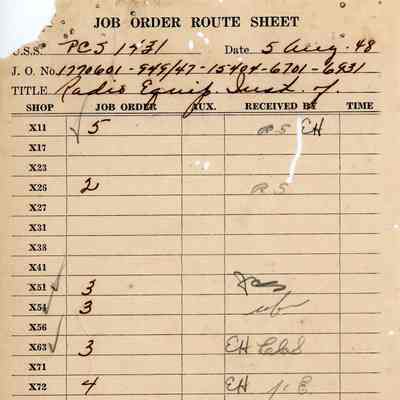 JOB ORDER ROUTE SHEET
U.S.S. PCS 1431 Date 5 Aug. 48
J. O. No. 1770601-949/47-15404-6701-6931
TITLE Radio Equip. Inst. of.
SHOP JOB ORDER AUX. RECEIVED BY TIME
X11 ✓ 5 RS EH
X17
X23
X26 2 RS
X27
X31
X38
X41
X51 ✓ 3
X54 ✓ 3
X56
X63 ✓ 3 EH
X71
X72 4 EH